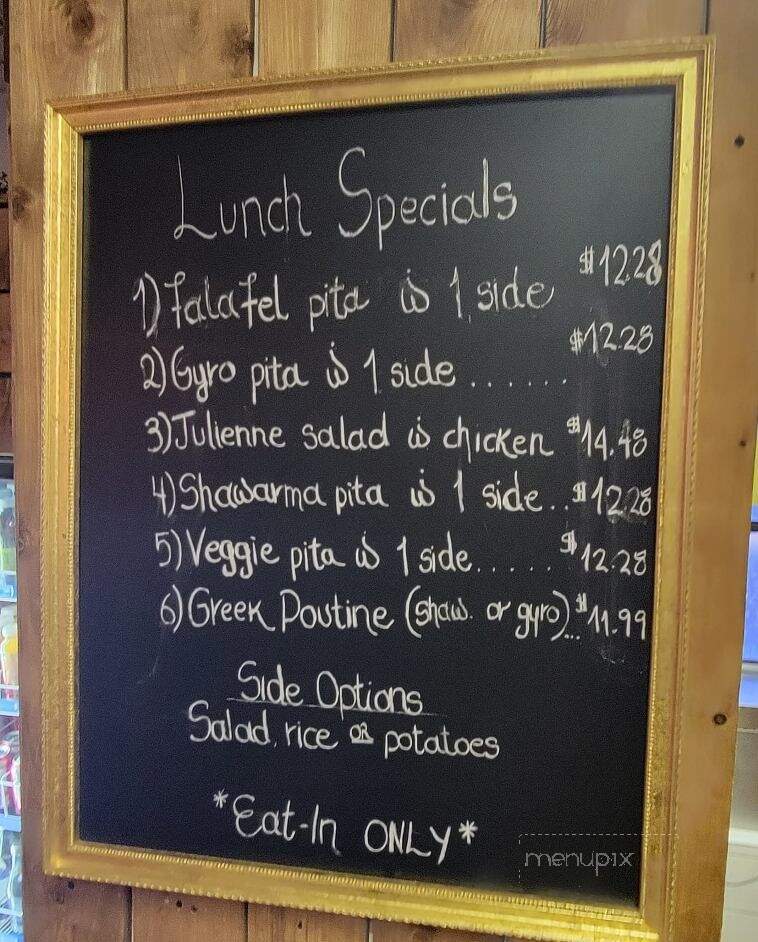 Lunch Specials
1) Falafel pita w 1 side $12.28
2) Gyro pita w 1 side ...... $12.28
3) Julienne salad w chicken $14.48
4) Shawarma pita w 1 side.. $12.28
5) Veggie pita w 1 side..... $12.28
6) Greek Poutine (shaw. or gyro)... $11.99
Side Options
Salad, rice OR potatoes
*Eat-In ONLY*
menupix